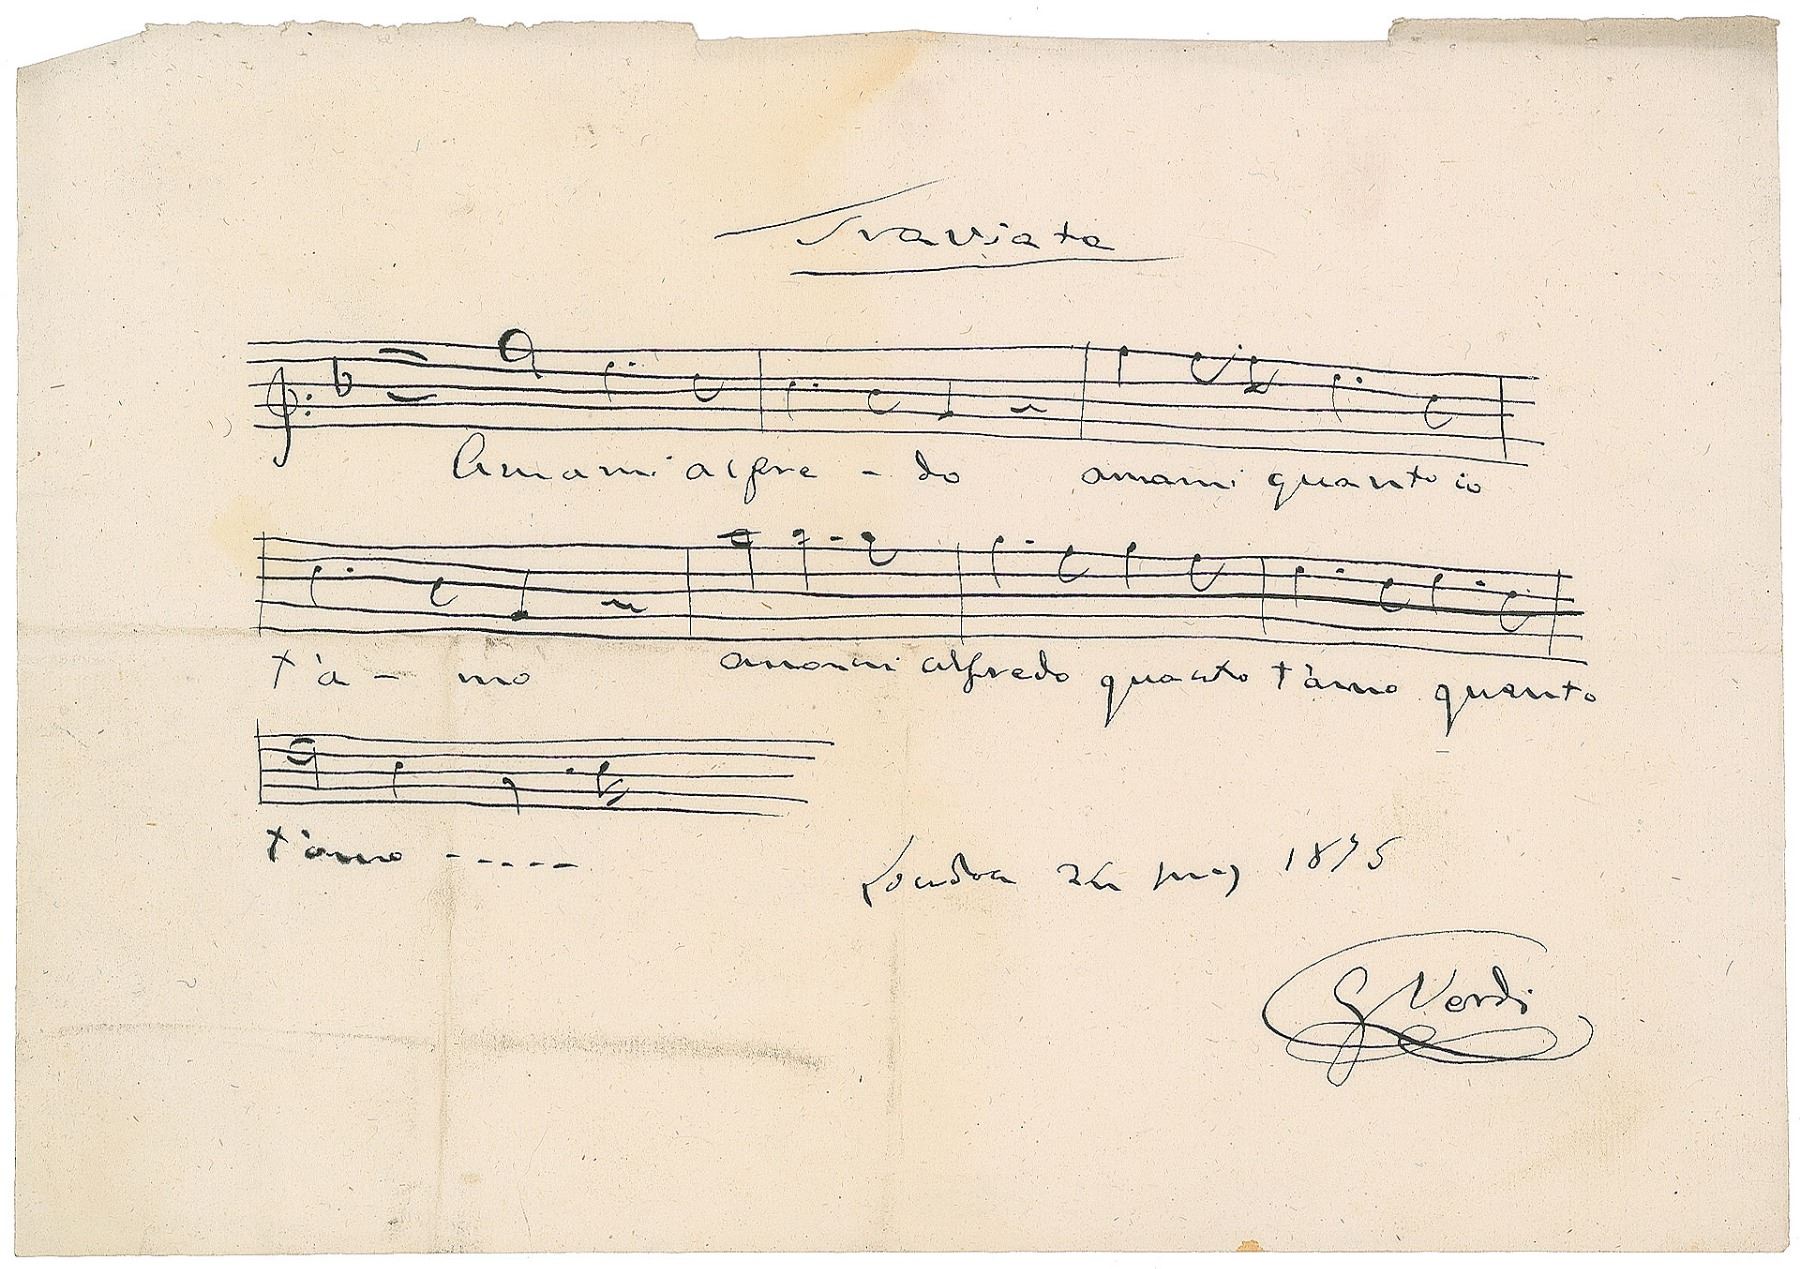 Traviata
Amami alfre - do amami quanto io
t'à - mo amami alfredo quanto t'àmo quanto
t'àmo - - - - -
Londra 1875
G Verdi